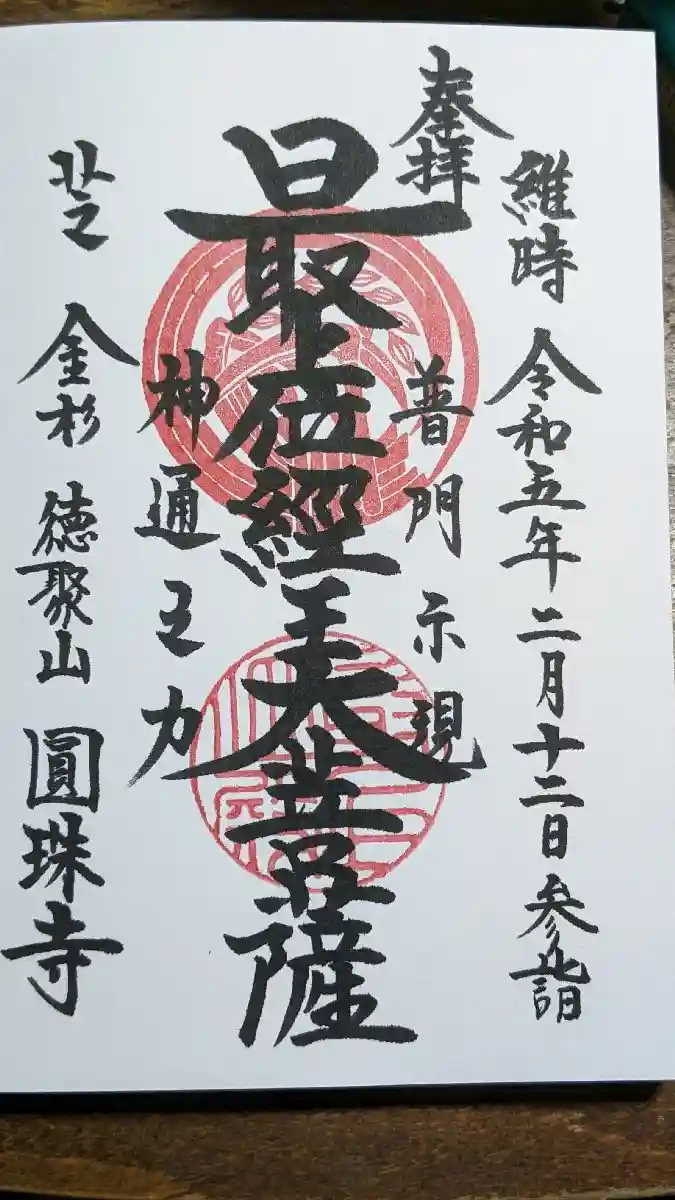 維時 令和五年二月十二日 参詣
奉拝
普門示現
最上位經王大菩薩
神通之力
芝 金杉 徳聚山 圓珠寺